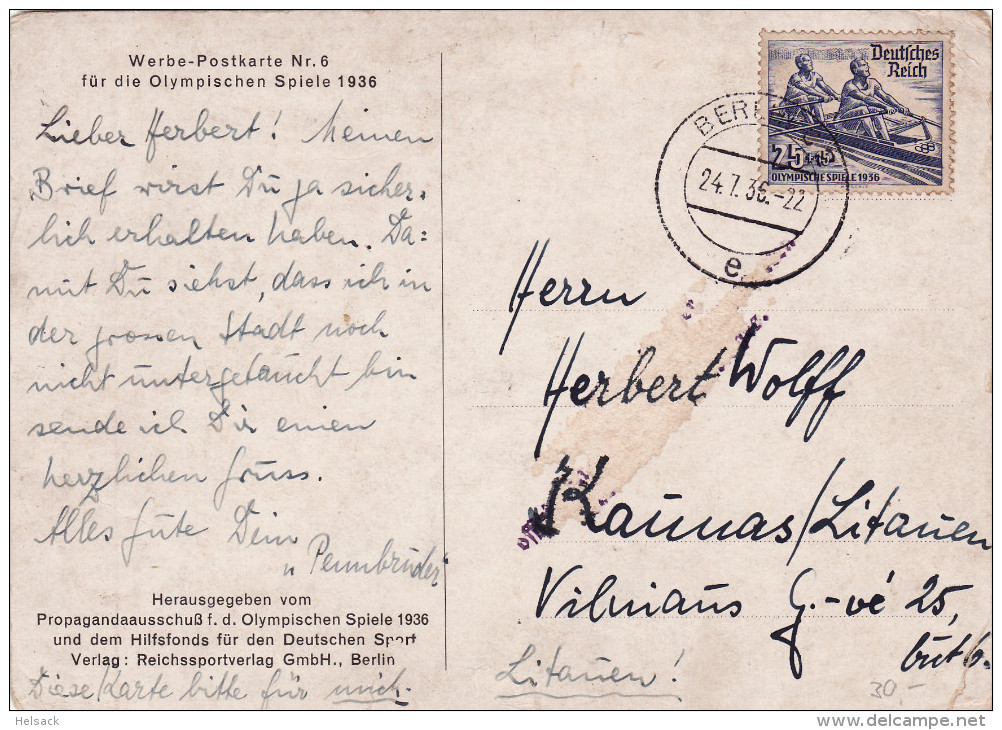 Werbe-Postkarte Nr. 6
für die Olympischen Spiele 1936
Lieber Herbert! Meinen
Brief wirst Du ja sicher-
lich erhalten haben. Da=
mit Du siehst, dass ich in
der grossen Stadt noch
nicht untergetaucht bin
sende ich Dir einen
herzlichen Gruss.
Alles Gute Dein
„Pennbruder“
Herausgegeben vom
Propagandaausschuß f. d. Olympischen Spiele 1936
und dem Hilfsfonds für den Deutschen Sport
Verlag: Reichssportverlag GmbH., Berlin
Diese Karte bitte für mich.
Deutsches
Reich
25+15
OLYMPISCHE SPIELE 1936
BERLIN
24.7.36.-22
e
Herrn
Herbert Wolff
Kaunas/Litauen
Vilniaus G.-vé 25,
but 6.
Litauen!
30.-
Helsack
delcampe.net